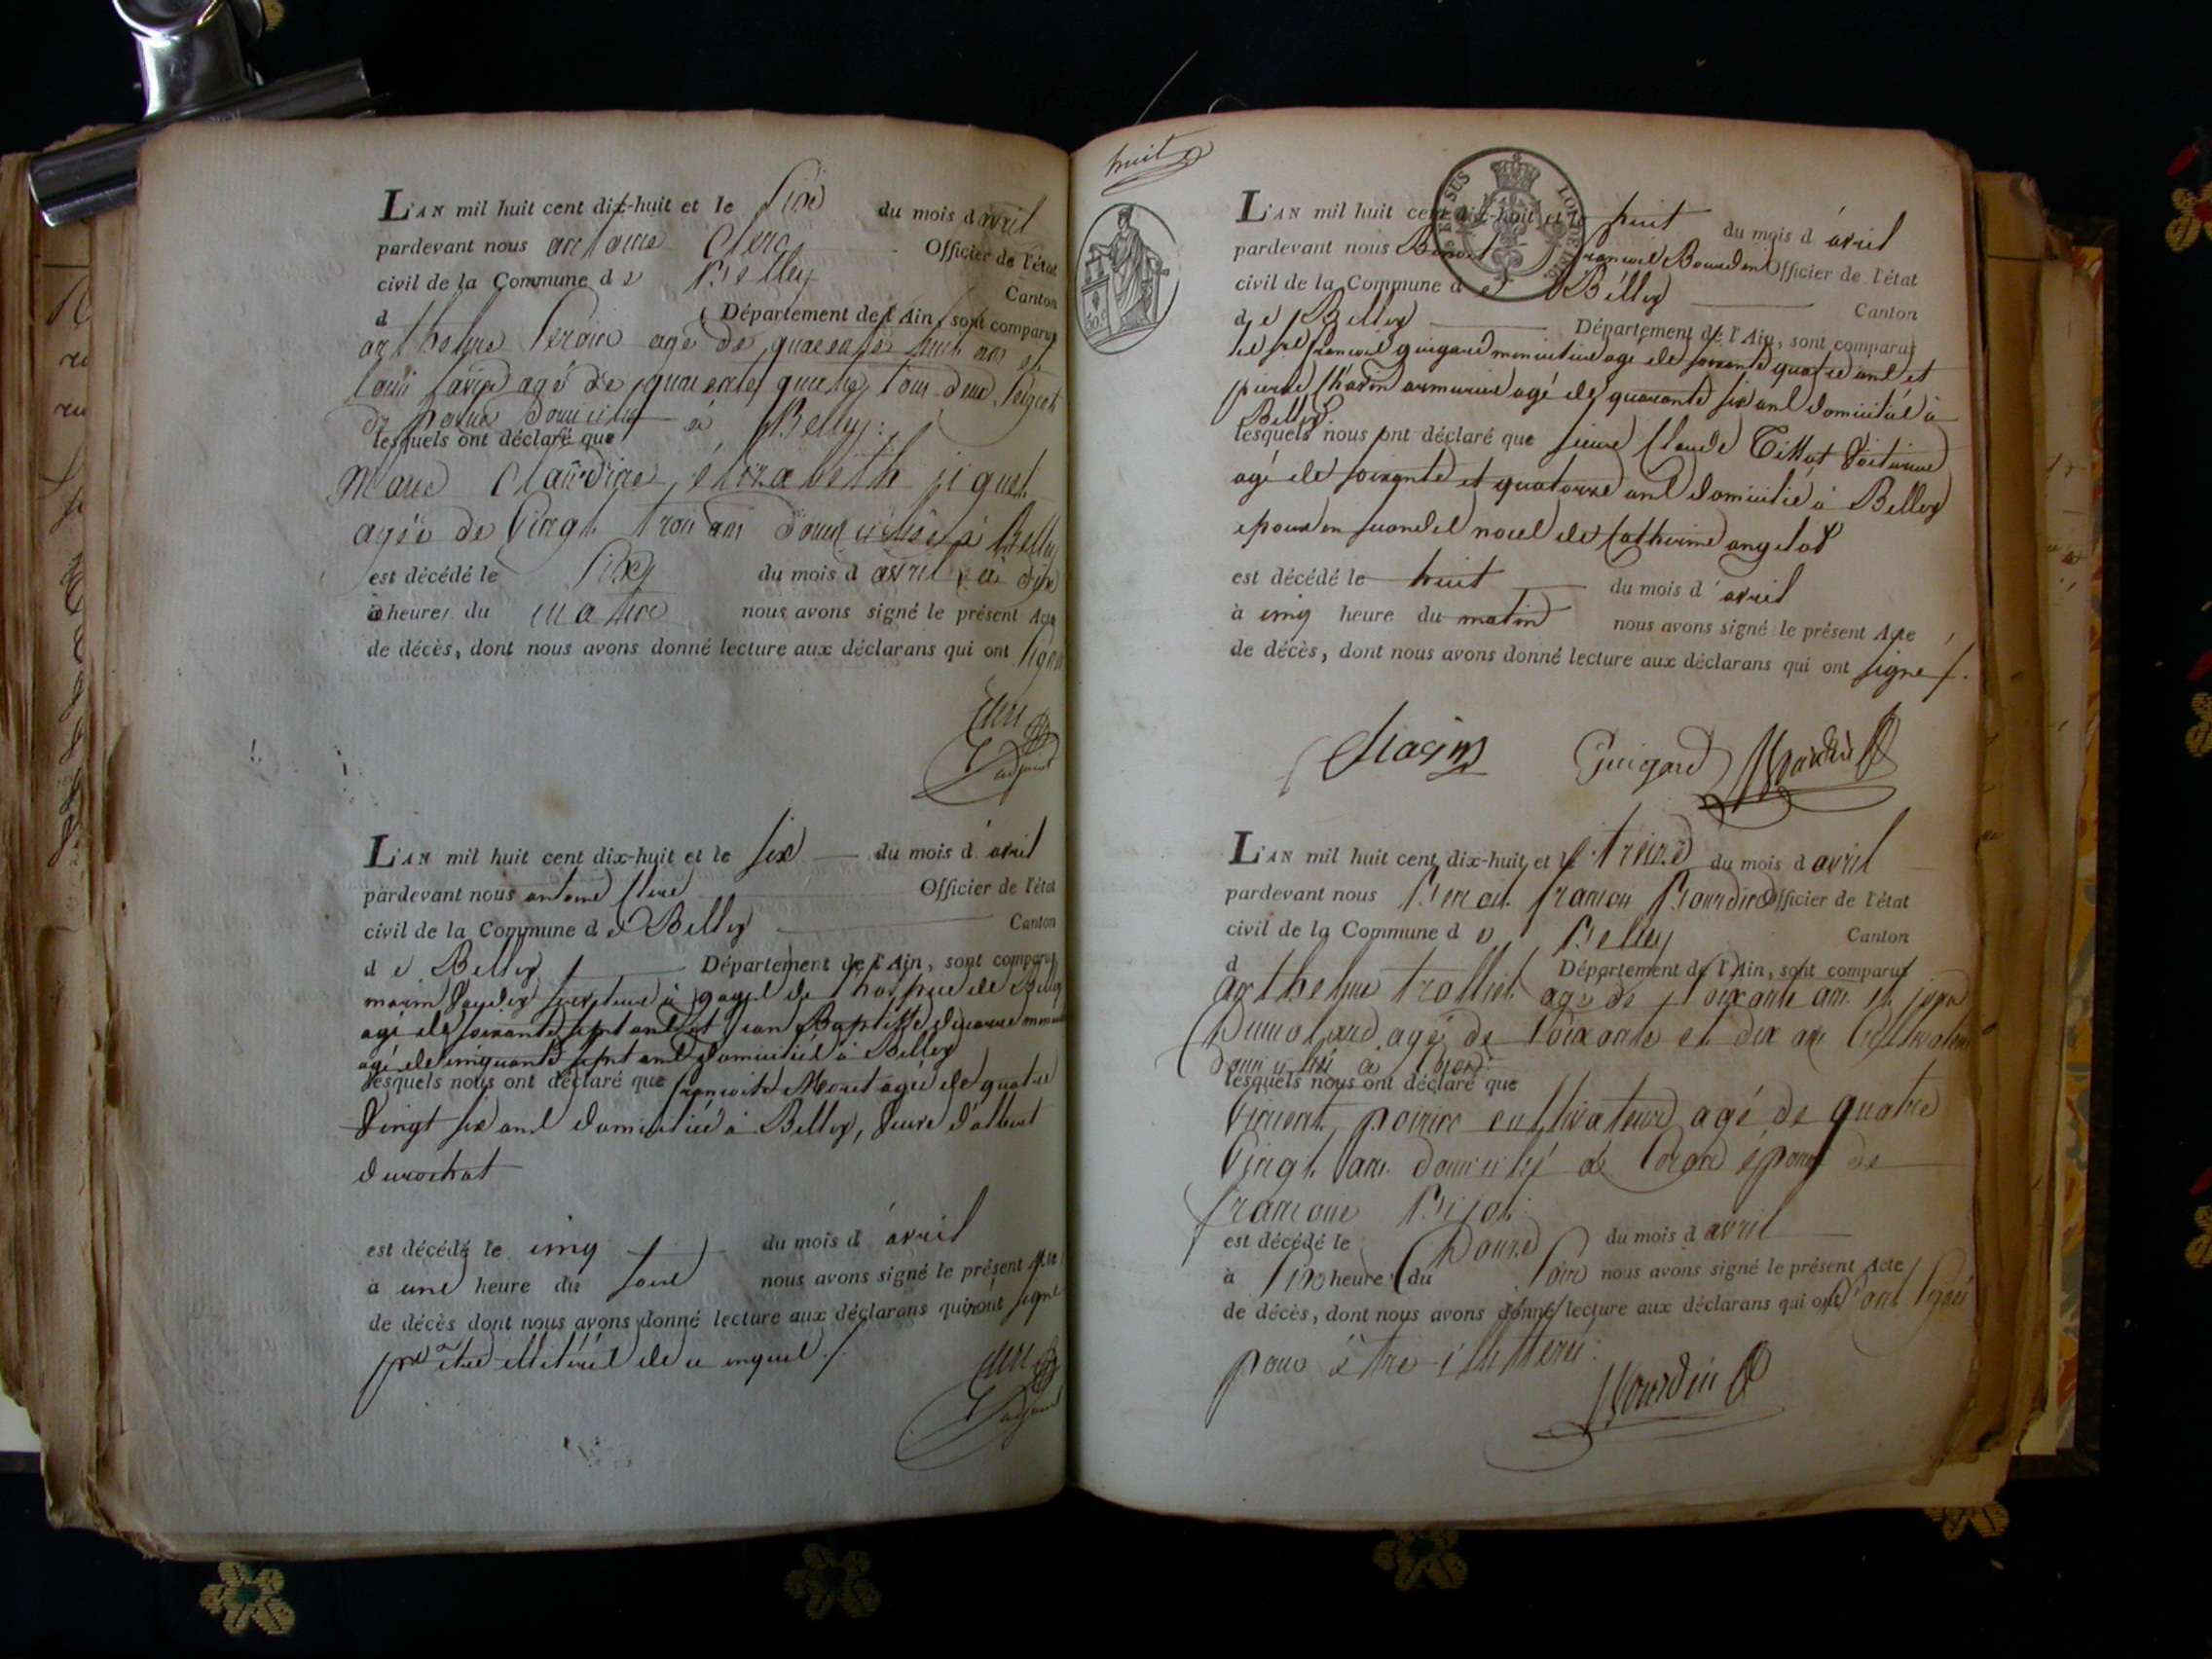 L'AN mil huit cent dix-huit et le Six du mois d avril
pardevant nous antoine Clerc Officier de l'état
civil de la Commune d e Belley
Canton
d Département de l'Ain, sont comparus
anthelme agé de quarante huit ans et
Loui agé de quarente quatre, tous deux
domicilié à Belley:
lesquels ont déclaré que
Marie Claudine élizabeith jiguet
agée de Vingt trois ans domiciliée à Belley
est décédé le Six du mois d avril à dix
heures du matin nous avons signé le présent Acte
de décès, dont nous avons donné lecture aux déclarans qui ont Signé
Clerc
adjoint
L'AN mil huit cent dix-huit et le six du mois d avril
pardevant nous antoine Clerc Officier de l'état
civil de la Commune d e Belley
Canton
d e Belley Département de l'Ain, sont comparus
marin serviteur à gages de l'hospice de Belley
agé de soixante sept ans et jean Baptiste
agé de cinquante sept ans domiciliés à Belley
lesquels nous ont déclaré que françoise Moret agée de quatre
Vingt six ans domiciliée à Belley, Veuve d'albert
durochat
est décédé le cinq du mois d avril
à une heure du soir nous avons signé le présent Acte
de décès dont nous avons donné lecture aux déclarans qui n'ont signé
pour être illitérés de ce enquis ./.
Clerc
adjoint
huit
L'AN mil huit cent dix-huit et le huit du mois d avril
pardevant nous Benoit françois Bourdin Officier de l'état
civil de la Commune d e Belley
Canton
d e Belley Département de l'Ain, sont comparus
les srs françois guigard menuisier agé de soixante quatre ans et
pierre Chasin armurier agé de quarante six ans domiciliés à
Belley
lesquels nous ont déclaré que sieur Claude Tillot Voiturier
agé de soixante et quatorze ans domicilié à Belley
epoux en secondes noces de Catherine angelot
est décédé le huit du mois d avril
à cinq heure du matin nous avons signé le présent Acte
de décès, dont nous avons donné lecture aux déclarans qui ont signé ./.
Chasin Guigard Bourdin
L'AN mil huit cent dix-huit et le treize du mois d avril
pardevant nous Benoit francois Bourdin Officier de l'état
civil de la Commune d e Belley
Canton
d Département de l'Ain, sont comparus
anthelme trolliet agé de soixante ans et
agé de Soixante et dix ans Cultivateurs
domiciliés à
lesquels nous ont déclaré que
Vincent poirin cultivateur agé de quatre
Vingt ans domicilié à époux de
francoise
est décédé le Douze du mois d avril
à heure du Soir nous avons signé le présent Acte
de décès, dont nous avons donné lecture aux déclarans qui ont Signés
pour être illitterés.
Bourdin